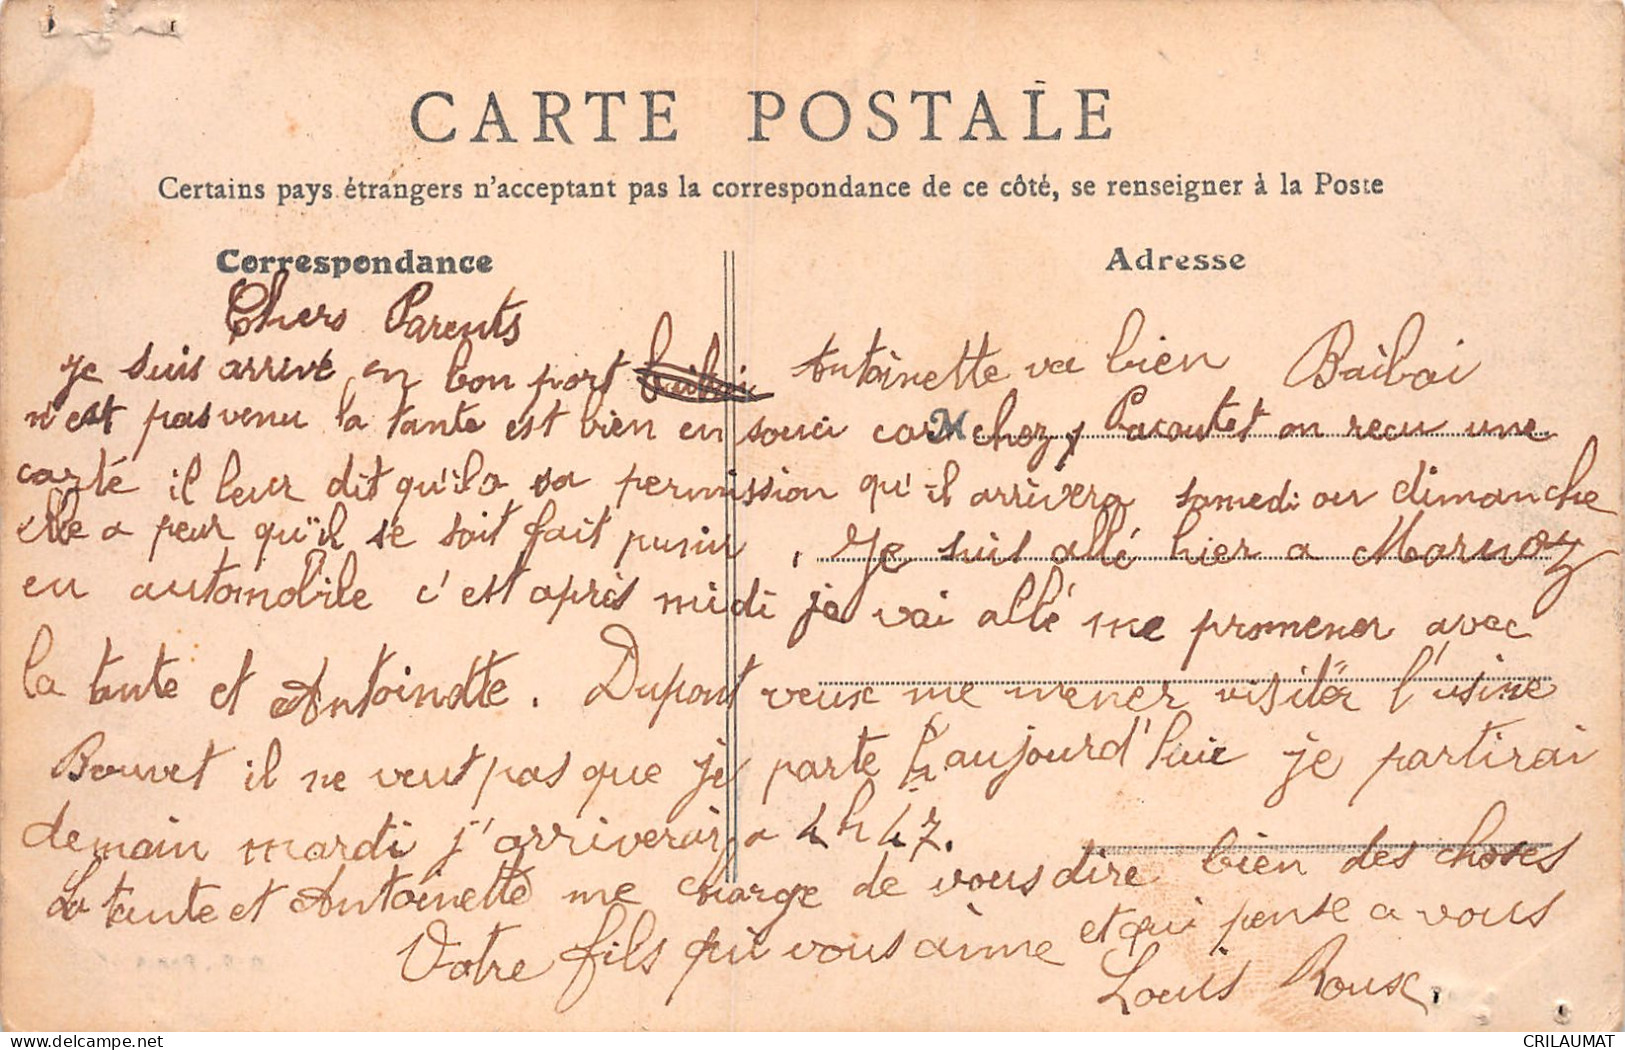 CARTE POSTALE
Certains pays étrangers n'acceptant pas la correspondance de ce côté, se renseigner à la Poste
Correspondance
Adresse
Chers Parents
Je suis arrivé en bon port Antoinette va bien Baibai
n'est pas venu la tante est bien en souci car M chez Pacoutet on recu une
carté il leur dit qu'il a sa permission qu'il arrivera samedi ou dimanche
elle a peur qu'il se soit fait punir, Je suis allé hier a Marnoz
en automobile c'est après midi je vai allé me promener avec
la tante et Antoinette. Dupont veux me mener visiter l'usine
Bouvet il ne veut pas que je parte aujourd'huie je partirai
demain mardi j'arriverai a 4 h 47.
La tante et Antoinette me charge de vous dire bien des choses
Votre fils qui vous aime et qui pense a vous
Louis Roux.
CRILAUMAT